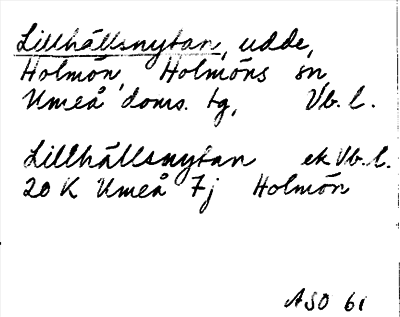 Lillhällsnytan, udde,
Holmön, Holmöns sn
Umeå doms. tg, Vb. l.
Lillhällsnytan ek Vb. l.
20 K Umeå 7j Holmön
ASO 61